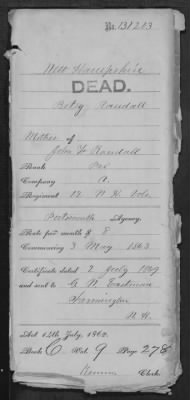 No. 131213
New Hampshire
DEAD.
Betsy Randall
Mother of
John F Randall
Rank Pri
Company A.
Regiment 12 N.H. Vols
Portsmouth Agency.
Rate per month $ 8
Commencing 3 May 1863
Certificate dated 2 July 1869
and sent to G. N. Eastman
Farmington
N.H.
Act 14th July, 1862.
Book C Vol. 9 Page 278
Clerk.